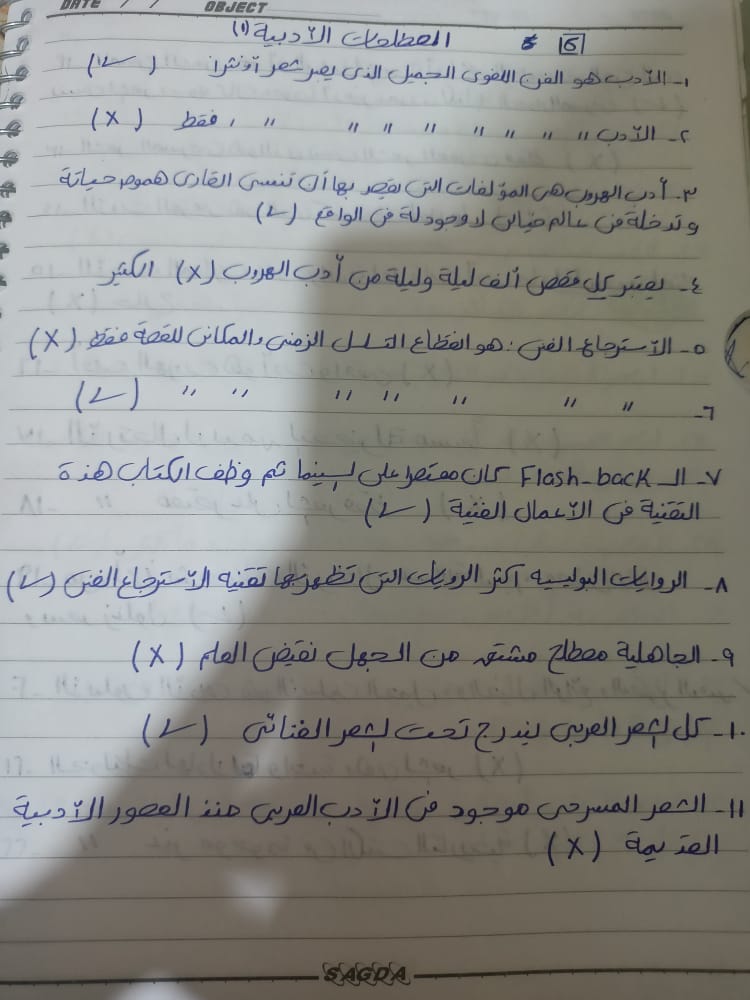 DATE / / OBJECT
المصطلحات الأدبية (١)
١- الأدب هو الفن اللغوى الجميل الذى يصير شعر أو نثرا (✓)
٢- الأدب " " " " " " " " فقط (X)
٣- أدب الهروب هى المؤلفات التى يقصد بها أن تنسى القارئ هموم حياتة
وتدخلة فى عالم خيالى لا وجود لة فى الواقع (✓)
٤- يعتبر كل قصص ألف ليلة وليلة من أدب الهروب (X) الكثير
٥- الأسترجاع الفنى: هو انقطاع التسلسل الزمنى والمكانى للقصة فقط (X)
٦- " " " " " " " (✓)
٧- الـ Flash-back كان مقتصرا على السينما ثم وظف الكتاب هذة
التقنية فى الأعمال الفنية (✓)
٨- الروايات البوليسيه أكثر الرويات التى تظهر بها تقنيه الأسترجاع الفنى (✓)
٩- الجاهلية مصطلح مشتق من الجهل نقيض العلم (X)
١٠- كل الشعر العربى يندرج تحت الشعر الغنائى (✓)
١١- الشعر المسرحى موجود فى الأدب العربى منذ العصور الأدبية
القديمة (X)
SAGDA